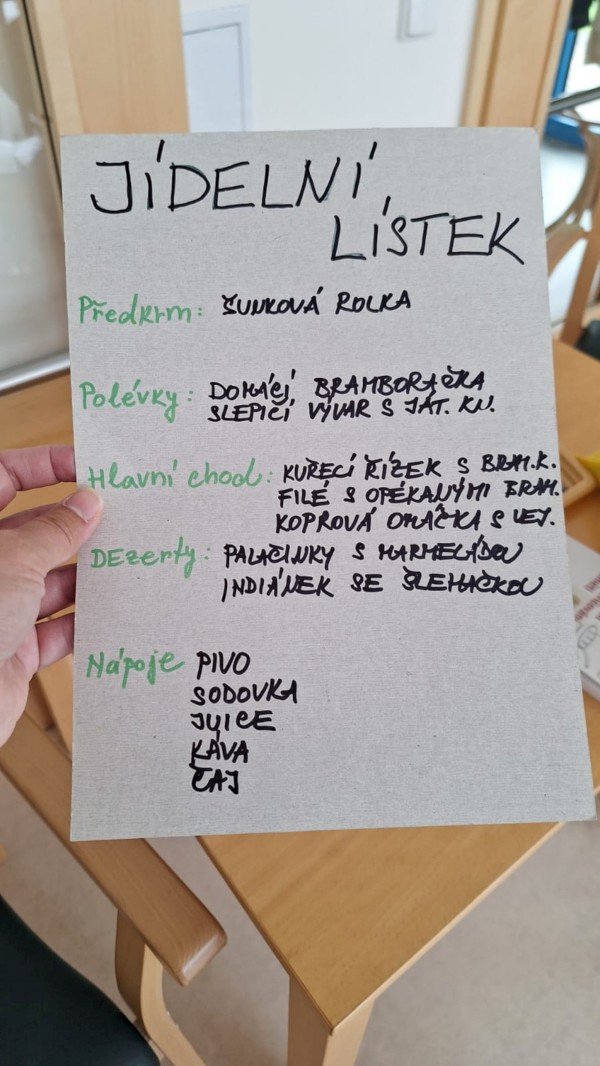 JÍDELNÍ
LÍSTEK
Předkrm: ŠUNKOVÁ ROLKA
Polévky: DOMÁCÍ BRAMBORAČKA
SLEPIČÍ VÝVAR S JÁT. KN.
Hlavní chod: KUŘECÍ ŘÍZEK S BRAM.K.
FILÉ S OPÉKANÝMI BRAM.
KOPROVÁ OMÁČKA S VEJ.
DEzerty: PALAČINKY S MARMELÁDOU
INDIÁNEK SE ŠLEHAČKOU
Nápoje PIVO
SODOVKA
JUICE
KÁVA
ČAJ